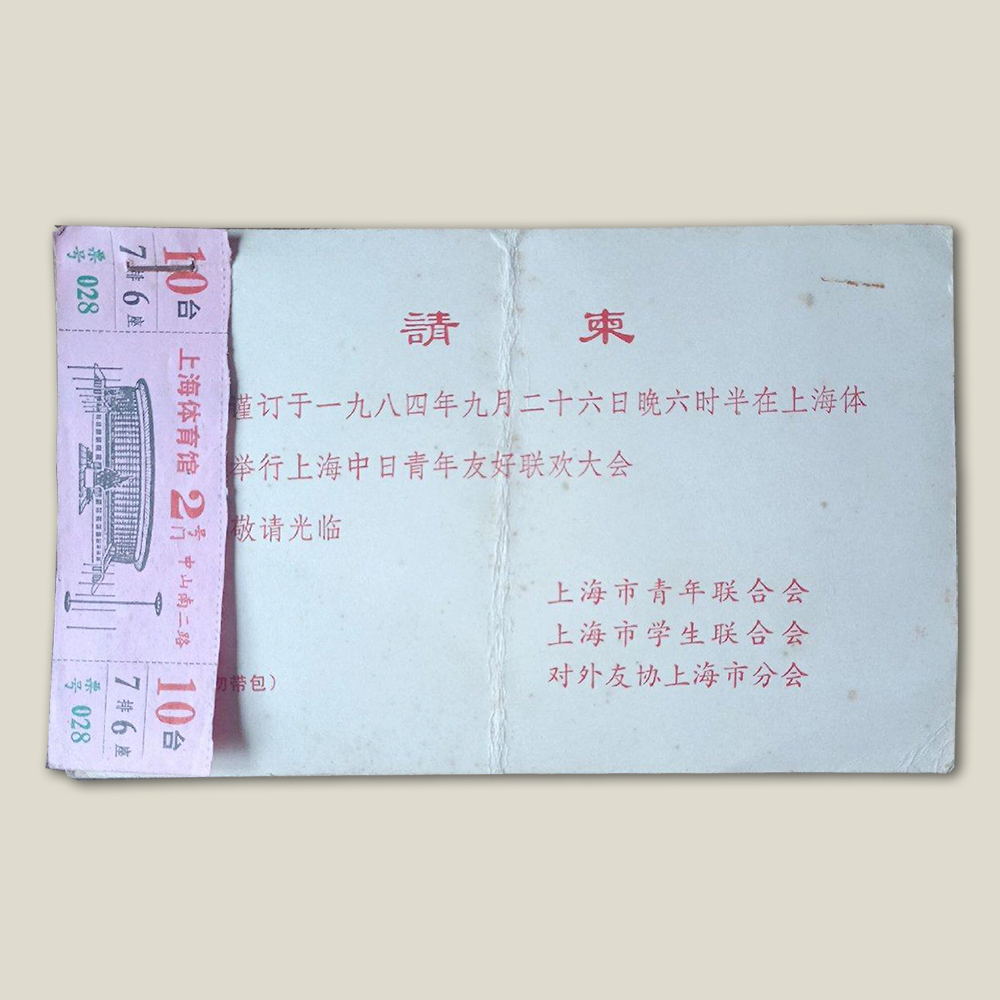 請柬
谨订于一九八四年九月二十六日晚六时半在上海体
举行上海中日青年友好联欢大会
敬请光临
上海市青年联合会
上海市学生联合会
对外友协上海市分会
勿带包）
10台
7排6座
票号 028
上海体育馆 2号门 中山南二路
10台
7排6座
票号 028